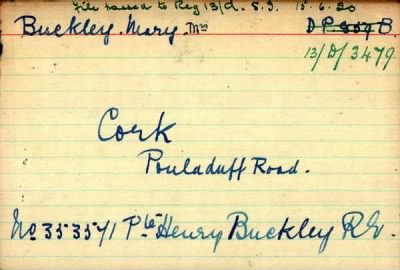 File passed to Reg 13/d. S.J. 15.6.20
Buckley. Mary. Mrs D P 807 B.
13/D/3479
Cork
Pouladuff Road.
No 353571 Pte Henry Buckley R.E.